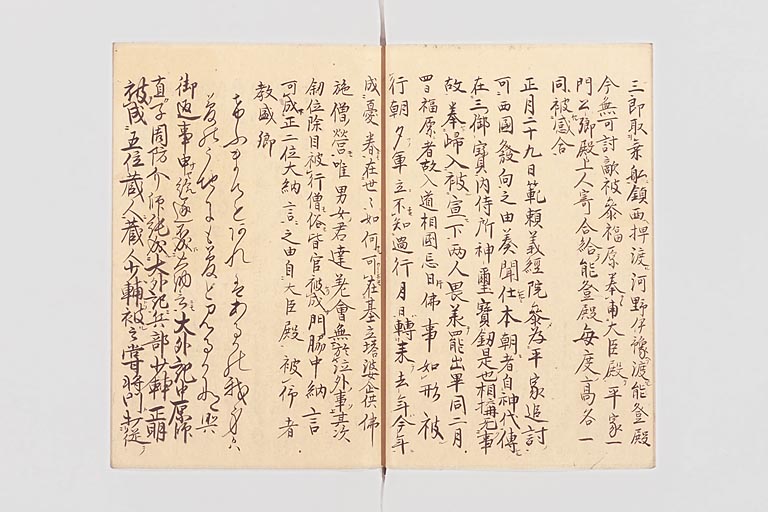 三郎取乗船鎮西押渡河野伊豫渡能登殿
今無可討敵被参福原奉甫大臣殿平家一
門公卿殿上人寄合給能登殿毎度高名一
同被感合
正月二十九日範頼義経院参為平家追討
可西國發向之由奏聞仕本朝者自神代傳
在三御寶内侍所神璽寶釼是也相構無事
故奉歸入被宣下両人畏羕罷出畢同二月
四日福原者故入道相國忌日佛事如形被
行朝夕軍立不知過行月日轉来去年今年
成憂巻在世如何可在基立塔婆企供佛
施僧営唯男女君達差會無於位外事其次
釼位除目被行僧俗皆官被成門脇中納言
可成正二位大納言之由自大臣殿被仰者
教盛卿
けふまてもあれはあるかの我身かは
夢のうちにも夢をみるかな
御返事申給遂不大納言大外記中原師
直子周防介師純成大外記兵部少輔正明
被成五位蔵人蔵人少輔被之昔将門